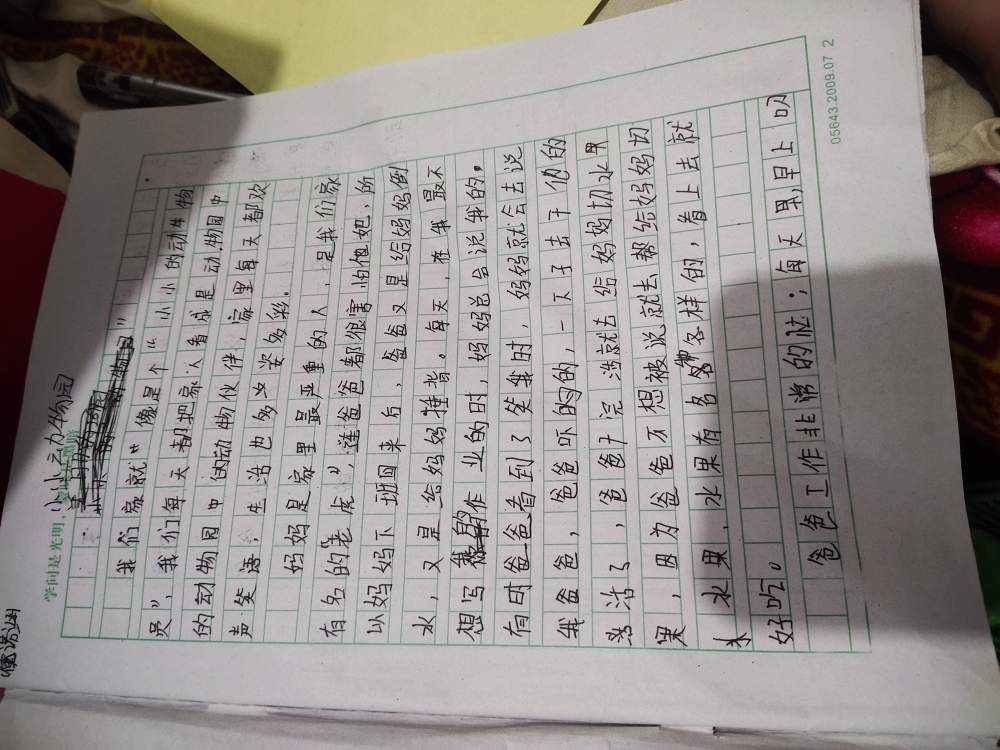 学问是光明,
小小动物园
我们家就"像是个"小小的动牛物
员",我们每天都把家人看成是动物园中
的动物园中的动物伙伴,家里每天都欢
声笑语;生活也多半姿多彩。
妈妈是家里最严重的人,是我们家
有名的"老虎",连爸爸都很害怕他她,所
以妈妈下班回来后,爸爸又是给妈妈倒
水,又是给妈妈捶背。每天,在我最不
想写我的作业的时,妈妈总会说我的。
有时爸爸看到了笑我时,妈妈就会去说
我爸爸,爸爸吓的的,一下子去干他的
活活了,爸爸干完活就去给妈妈切水果
果,因为爸爸不想被说就去帮给妈妈切
水水果,水果有各种各样的,看上去就
好吃。
爸爸工作非常的忙;每天早,早上
05643.2009.07 2